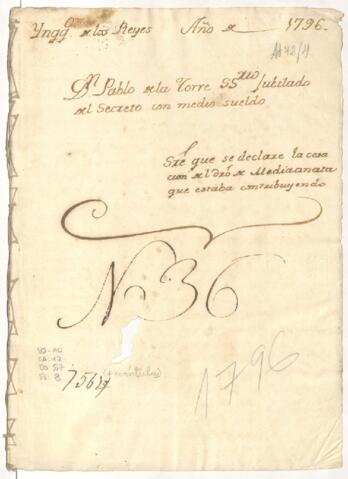 Ynqq.n de los Reyes Año de 1796.
A142/4
Dn. Pablo de la Torre SSrio Jubilado
del Secreto con medio sueldo
Sre. que se declare la cesa
cion del dro. de Mediaanata
que estaba contribuyendo
No 36
SO-AD
CA: 42
DO: 57
FS: 8
756 (+carátula)
1796